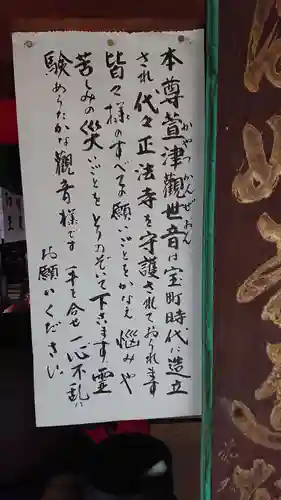 本尊萱津觀世音は室町時代に造立
かやつかんぜおん
され代々正法寺を守護されております
皆々様のすべての願いごとをかなえ悩みや
苦しみの災いごとをとりのぞいて下さいます 霊
験あらたかな觀音様です 手を合せ一心不乱に
お願いください